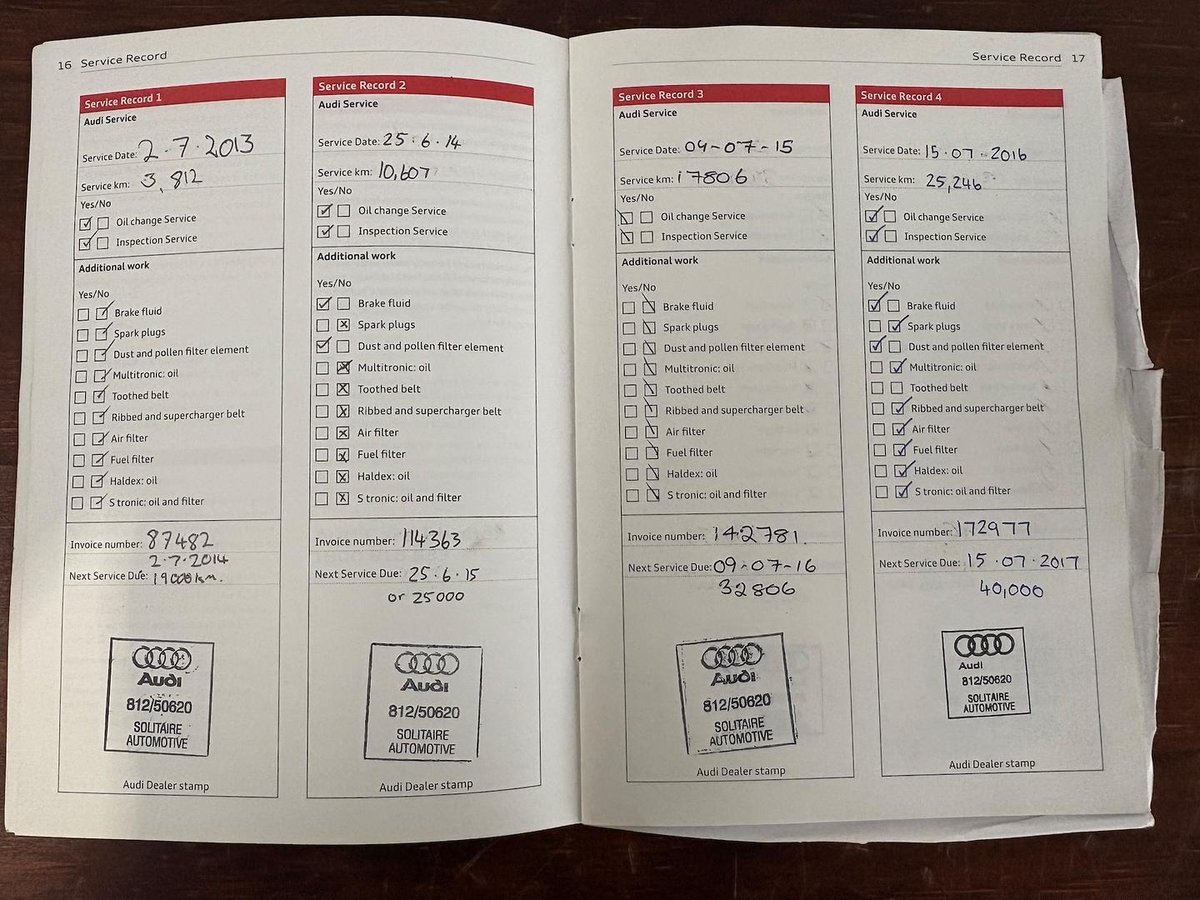 16 Service Record
Service Record 1
Audi Service
Service Date: 2.7.2013
Service km: 3,812
Yes/No
Oil change Service
Inspection Service
Additional work
Yes/No
Brake fluid
Spark plugs
Dust and pollen filter element
Multitronic: oil
Toothed belt
Ribbed and supercharger belt
Air filter
Fuel filter
Haldex: oil
S tronic: oil and filter
Invoice number: 87482
2.7.2014
Next Service Due: 19000km.
Audi
812/50620
SOLITAIRE
AUTOMOTIVE
Audi Dealer stamp
Service Record 2
Audi Service
Service Date: 25.6.14
Service km: 10,607
Yes/No
Oil change Service
Inspection Service
Additional work
Yes/No
Brake fluid
Spark plugs
Dust and pollen filter element
Multitronic: oil
Toothed belt
Ribbed and supercharger belt
Air filter
Fuel filter
Haldex: oil
S tronic: oil and filter
Invoice number: 114363
Next Service Due: 25.6.15
or 25000
Audi
812/50620
SOLITAIRE
AUTOMOTIVE
Audi Dealer stamp
Service Record 17
Service Record 3
Audi Service
Service Date: 09-07-15
Service km: 17806
Yes/No
Oil change Service
Inspection Service
Additional work
Yes/No
Brake fluid
Spark plugs
Dust and pollen filter element
Multitronic: oil
Toothed belt
Ribbed and supercharger belt
Air filter
Fuel filter
Haldex: oil
S tronic: oil and filter
Invoice number: 142781.
Next Service Due: 09-07-16
32806
Audi
812/50620
SOLITAIRE
AUTOMOTIVE
Audi Dealer stamp
Service Record 4
Audi Service
Service Date: 15.07.2016
Service km: 25,246
Yes/No
Oil change Service
Inspection Service
Additional work
Yes/No
Brake fluid
Spark plugs
Dust and pollen filter element
Multitronic: oil
Toothed belt
Ribbed and supercharger belt
Air filter
Fuel filter
Haldex: oil
S tronic: oil and filter
Invoice number: 172977
Next Service Due: 15.07.2017
40,000
Audi
812/50620
SOLITAIRE
AUTOMOTIVE
Audi Dealer stamp